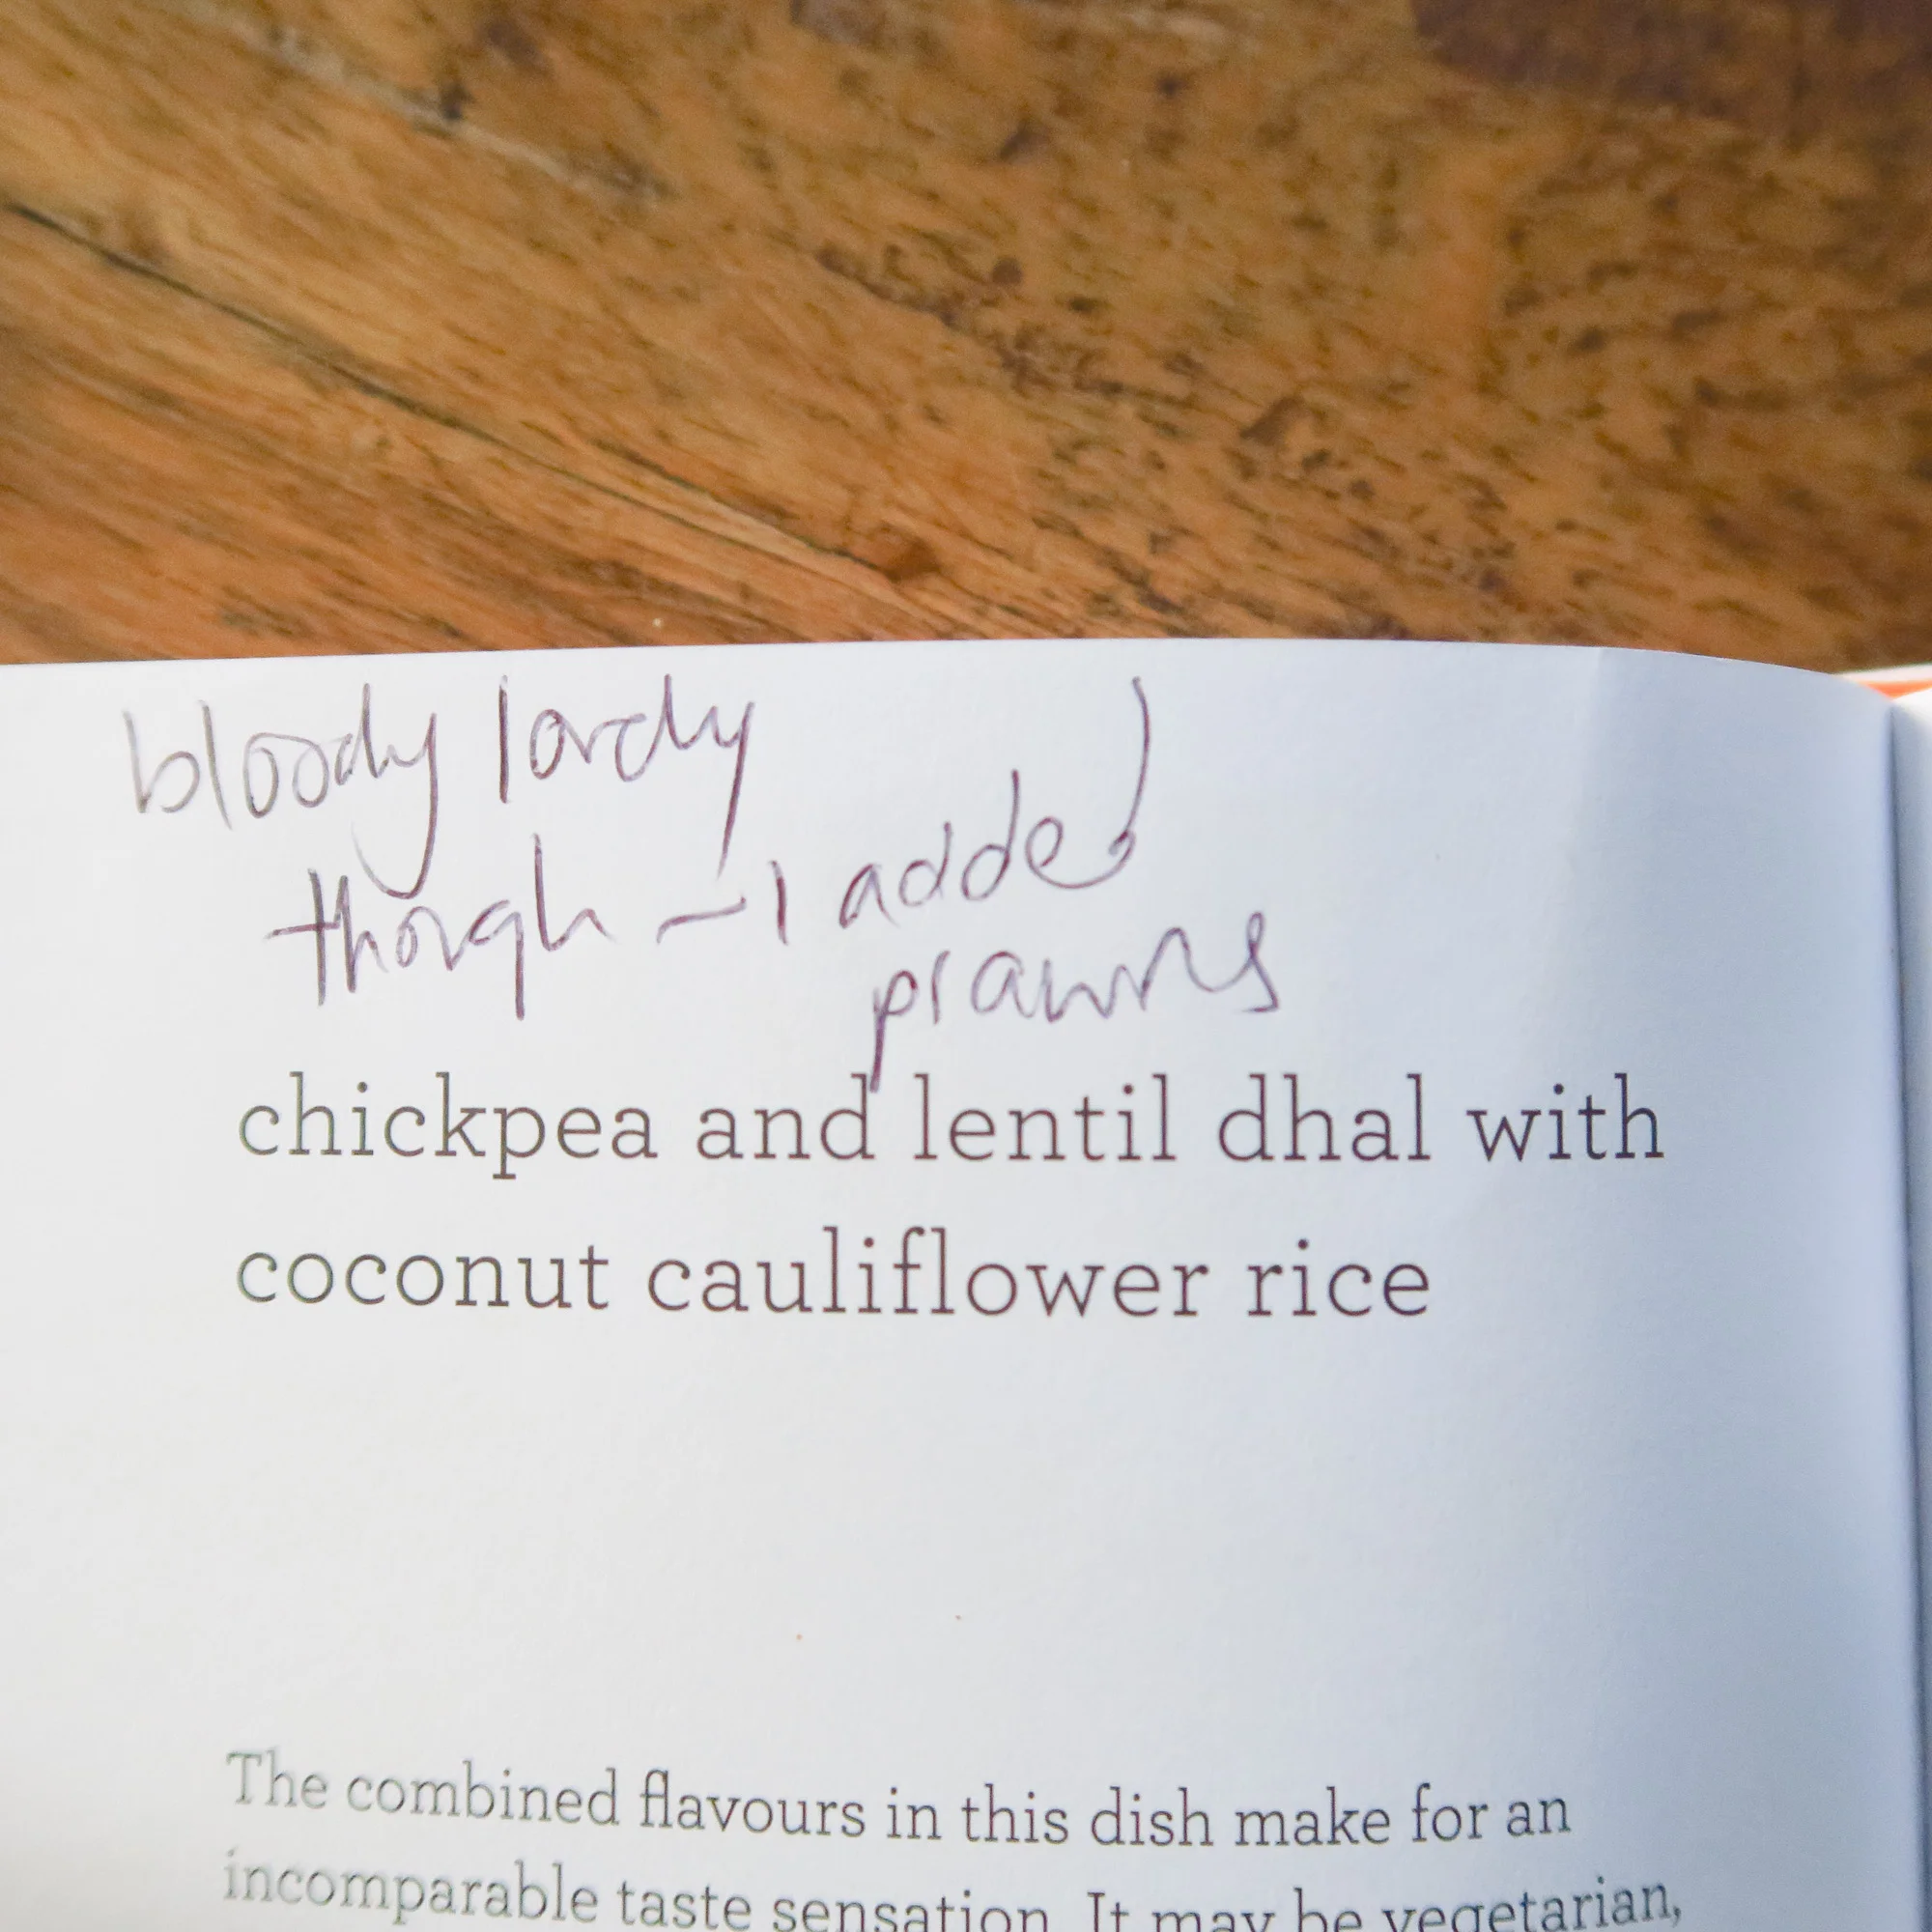 bloody lovely
though – I added
prawns
chickpea and lentil dhal with
coconut cauliflower rice
The combined flavours in this dish make for an
incomparable taste sensation. It may be vegetarian,